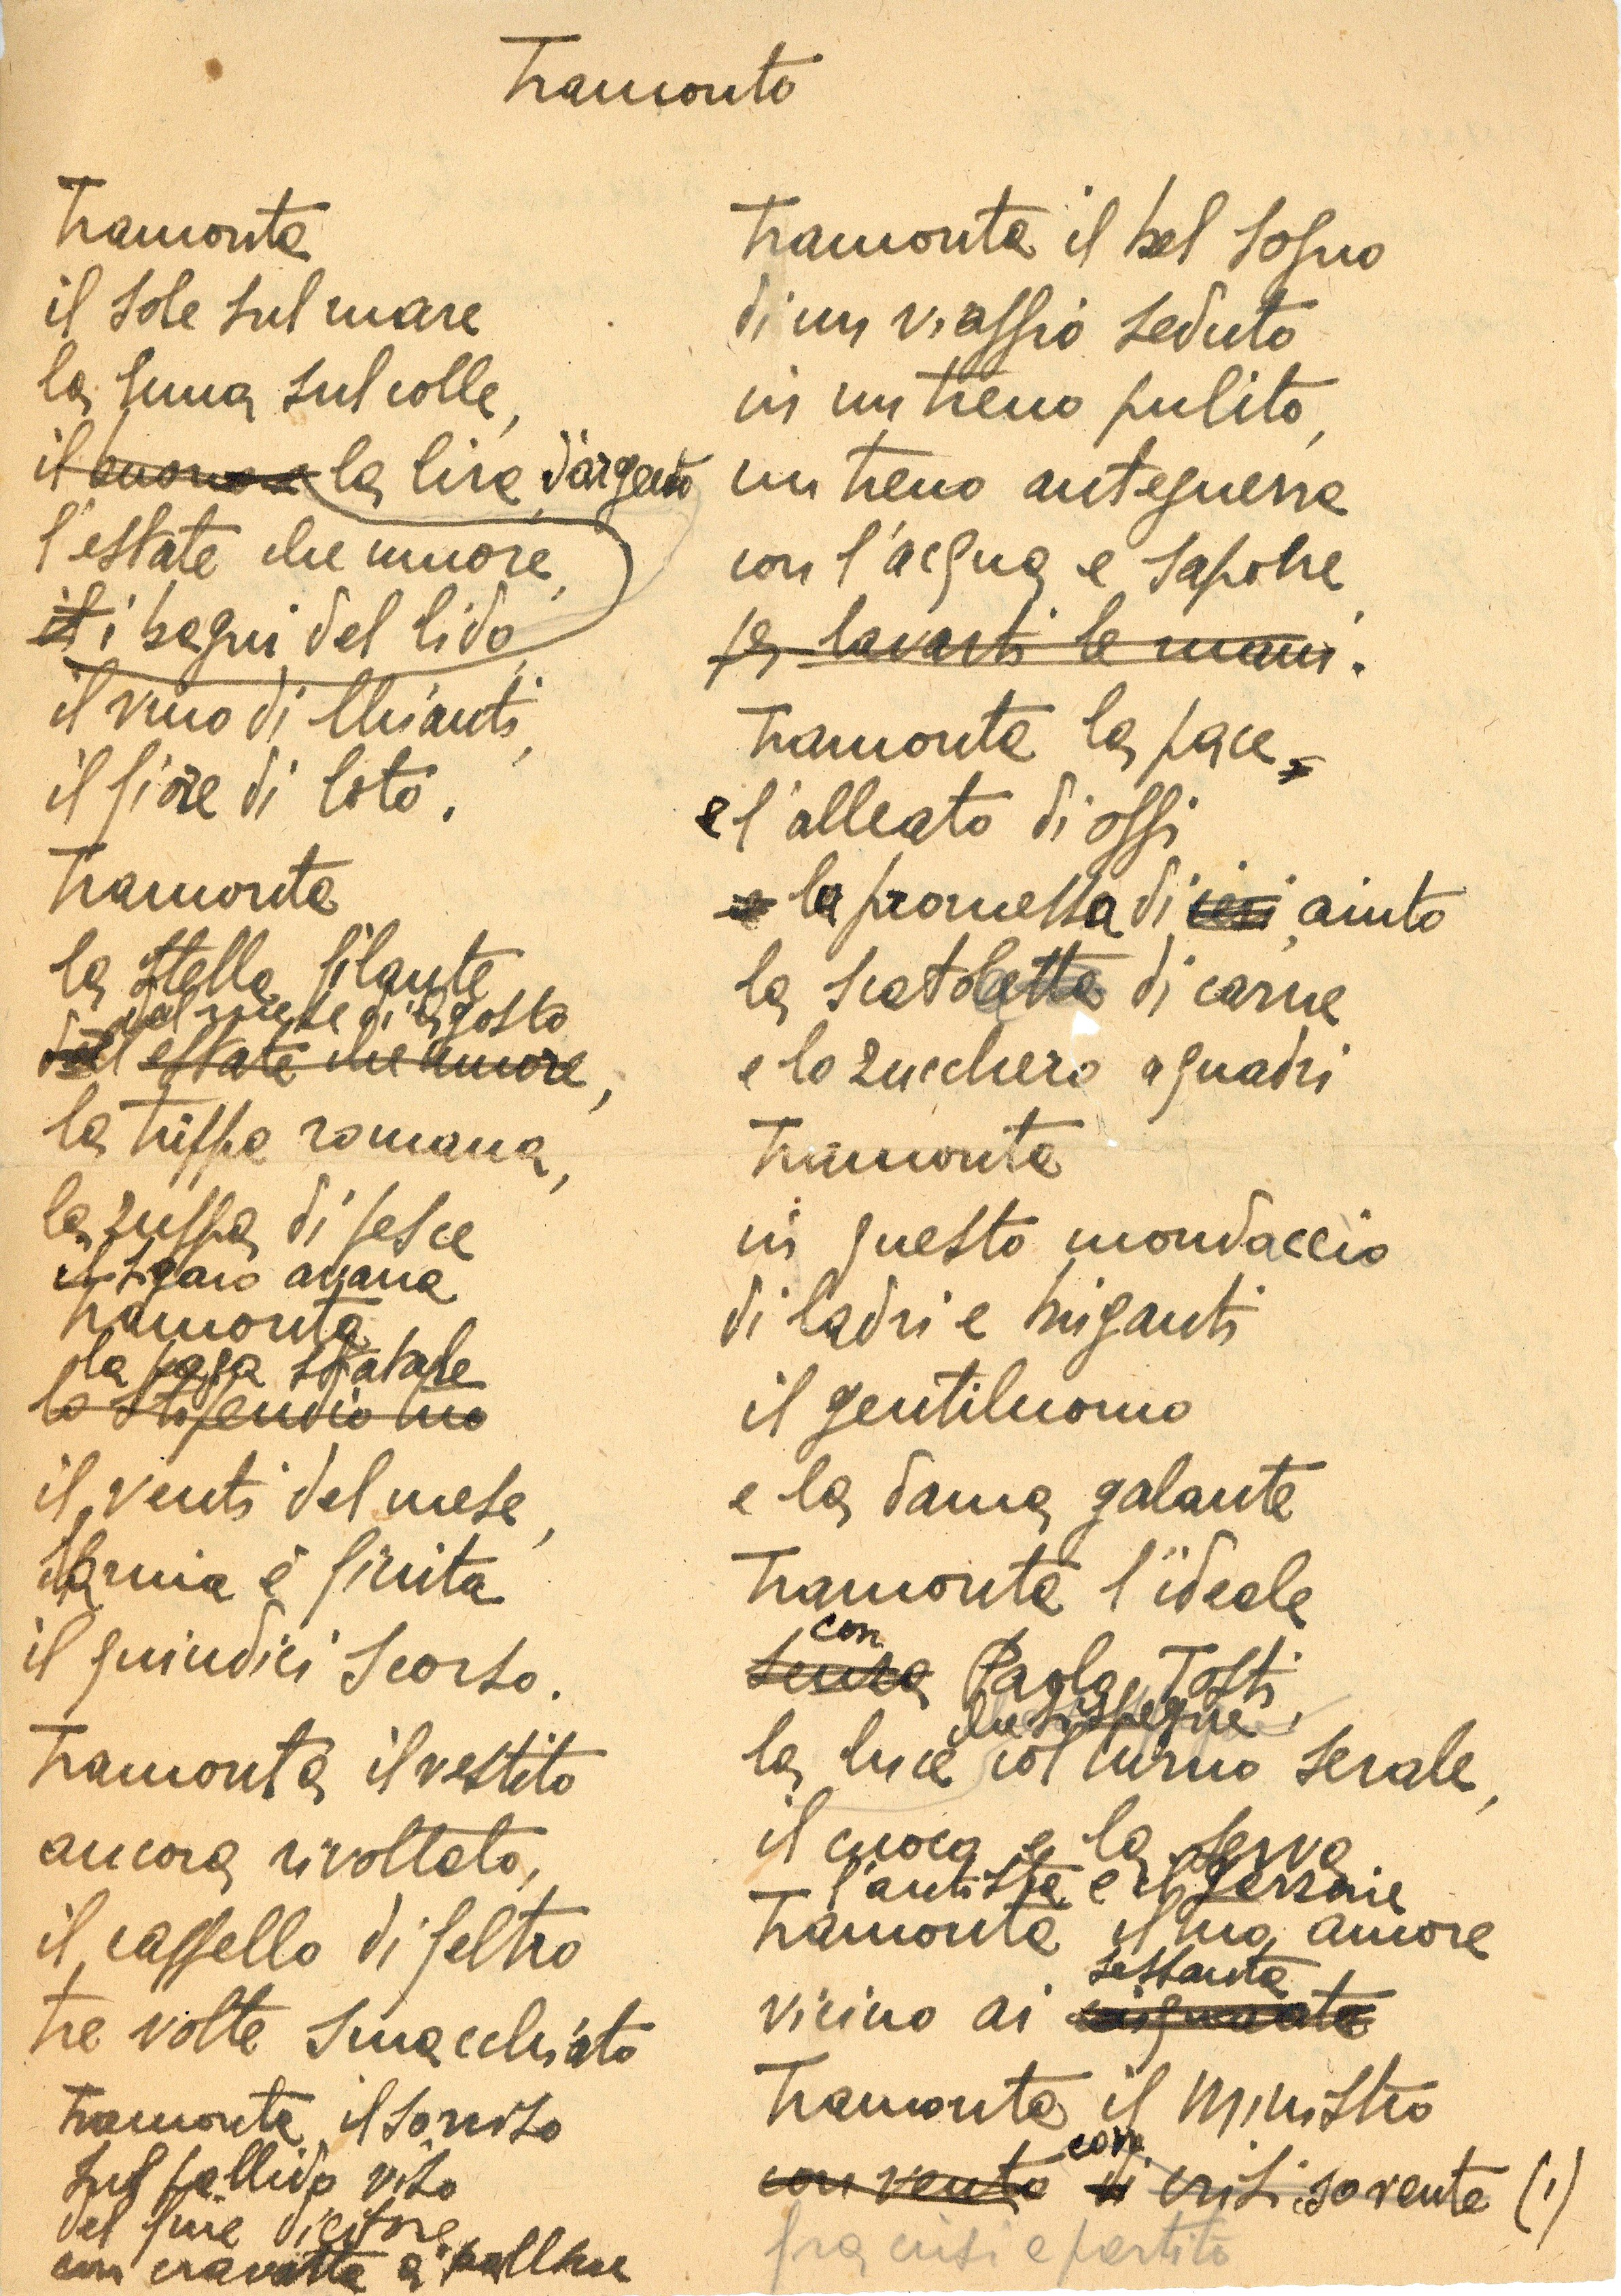 Tramonto
Tramonta
il sole sul mare
la luna sul colle,
il buono e la lira d'argento
l'estate che muore,
il i bagni del lido,
il vino di Chianti,
il fiore di loto.
Tramonta
la stella filante
del mese di agosto
dell estate che muore,
la trippa romana,
la zuppa di pesce
il sigaro avana
Tramonta
la paga statale
lo stipendio tuo
il venti del mese,
la mia è finita
il quindici scorso.
Tramonta il vestito
ancora rivoltato,
il cappello di feltro
tre volte smacchiato
Tramonta il sorriso
sul pallido viso
del fine dicitore
con cravatta a palline
Tramonta il bel sogno
di un viaggio seduto
in un treno pulito,
un treno anteguerra
con l'acqua e sapone,
per lavarti le mani.
Tramonta la pace
e l'alleato di oggi
e la promessa di ieri aiuto
la scatoletta di carne
e lo zucchero a quadri
Tramonta
in questo mondaccio
di ladri e briganti
il gentiluomo
e la dama galante
Tramonta l'ideale
con
senza Paolo Tosti,
che si spegne
la luce col turno serale,
il cuoco e la serva
l'autista e il garzone
Tramonta il tuo amore
sessanta
vicino ai cinquanta
Tramonta il Ministro
con
con vento di crisi sovente (1)
fra crisi e partito